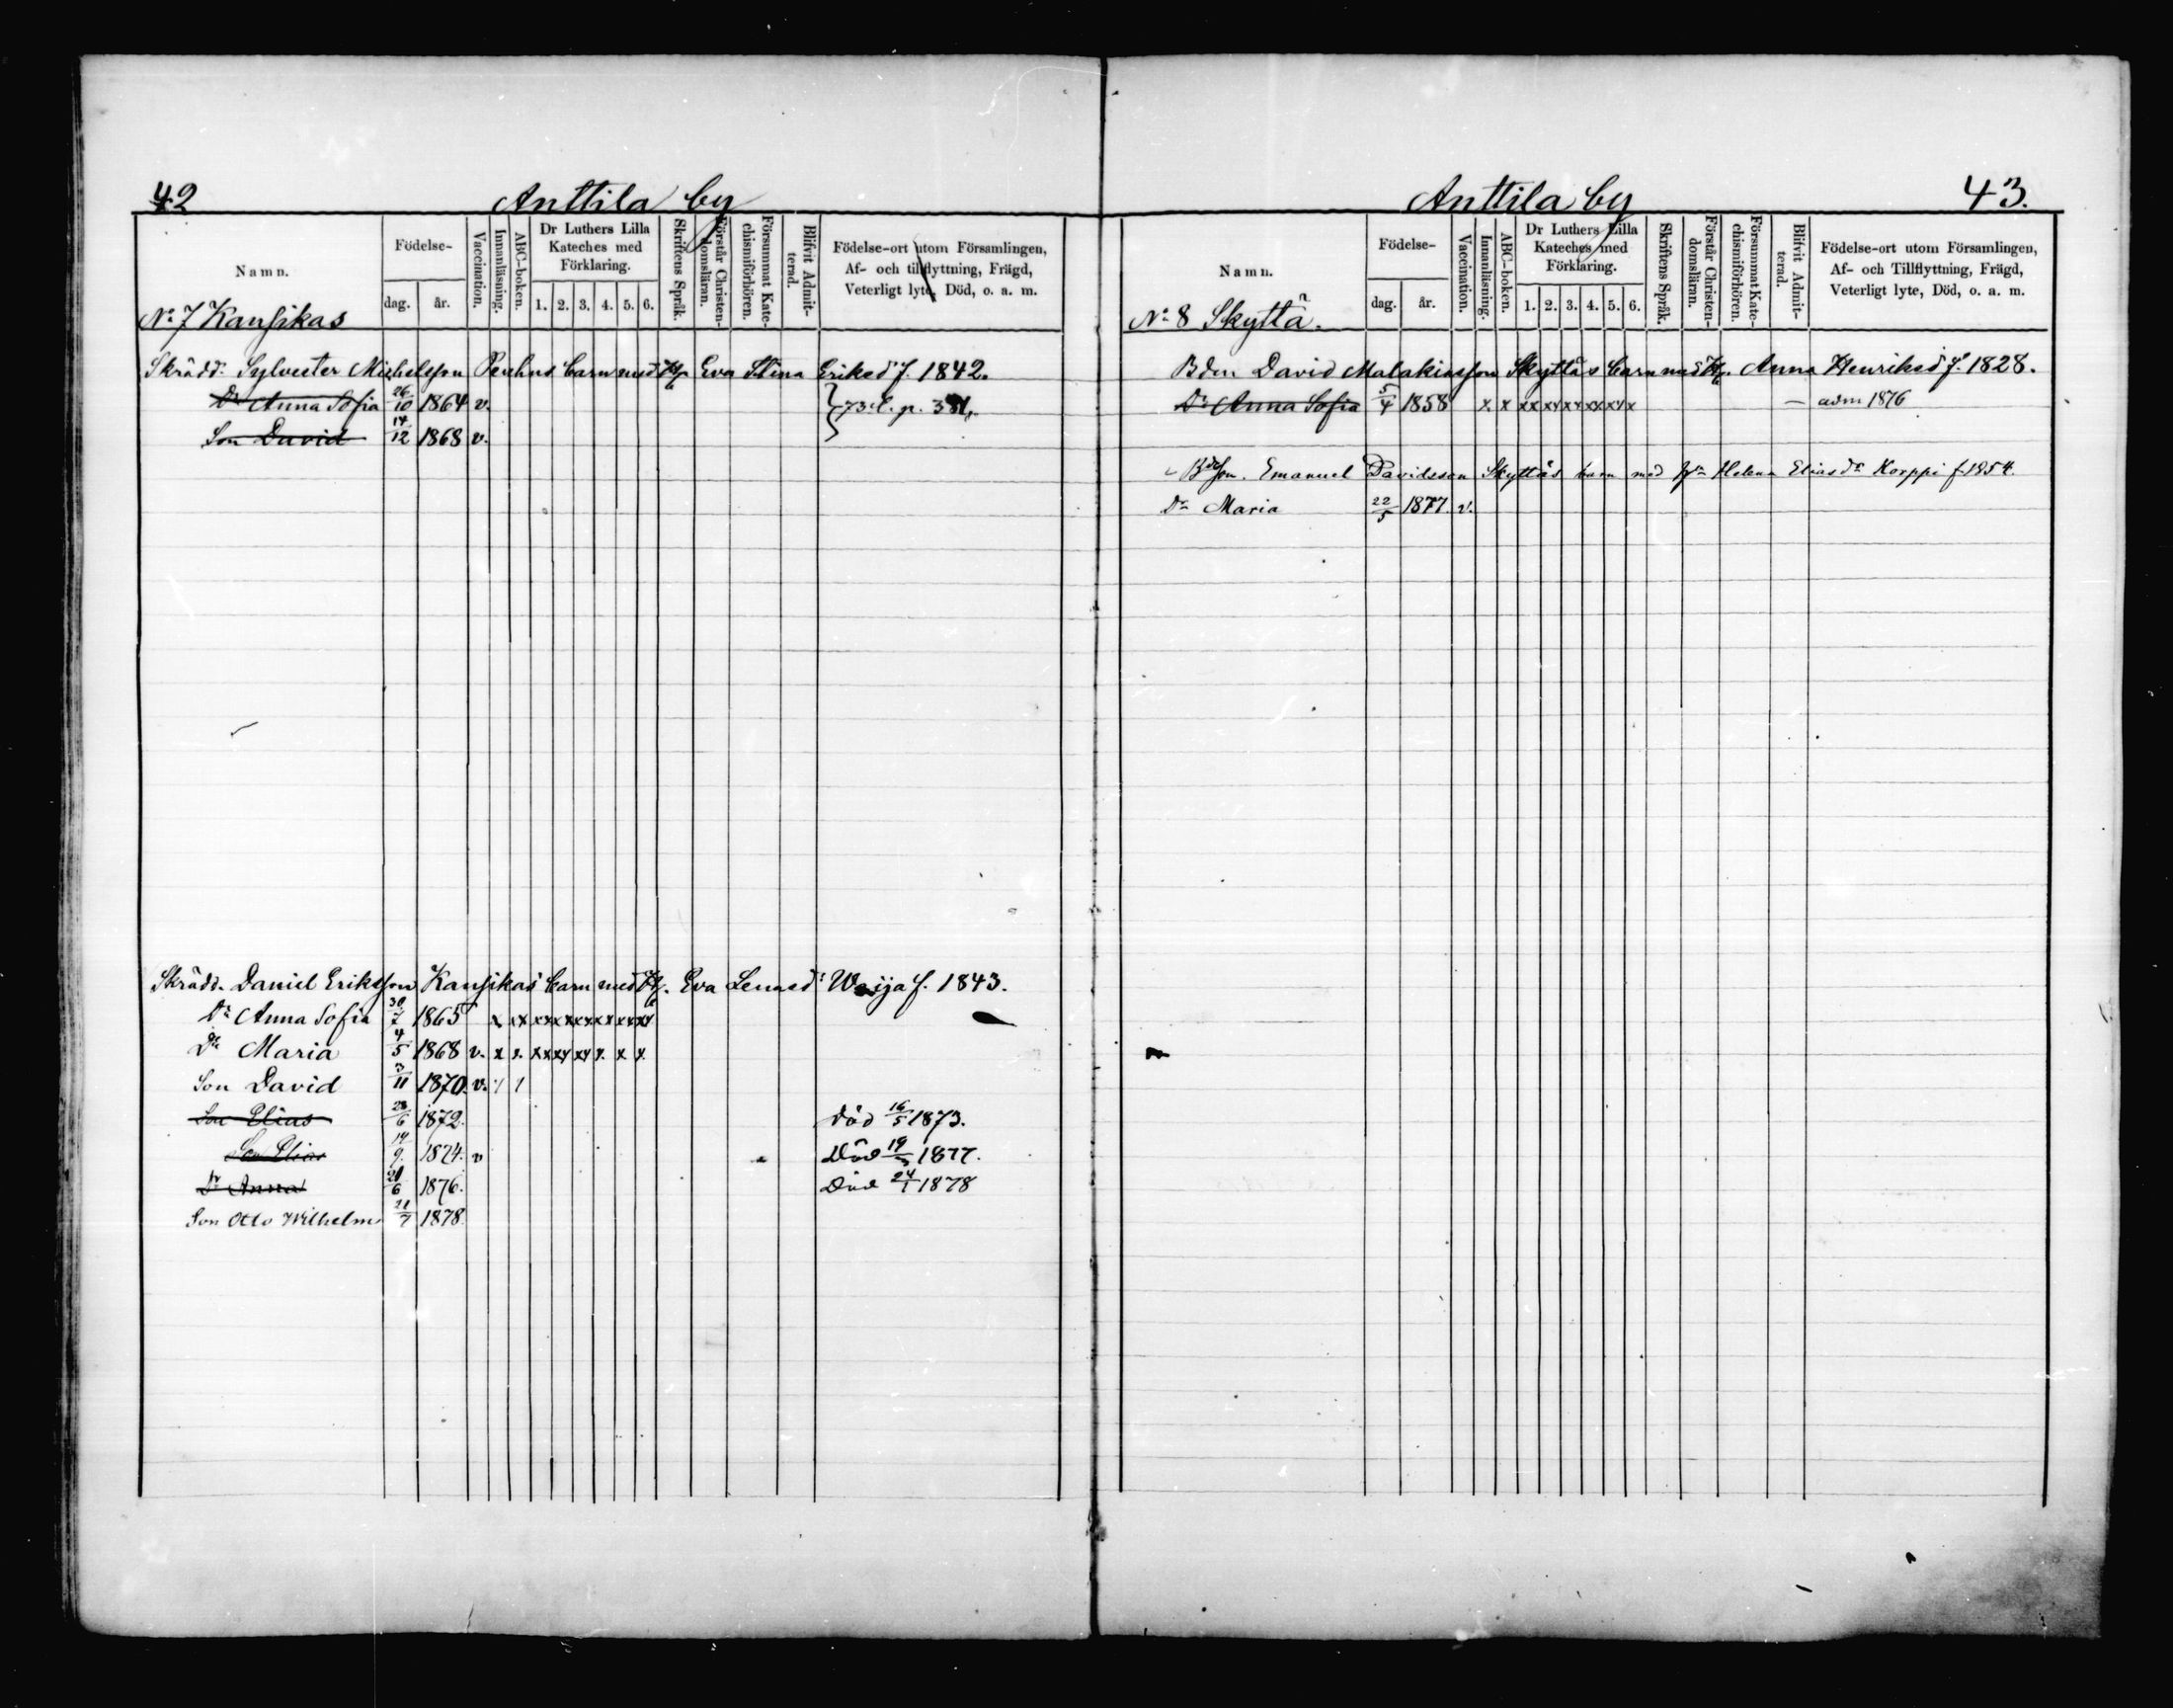 42 Anttila by
Namn.
Födelse-
dag. år.
Vaccination.
Innanläsning.
ABC-boken.
Dr Luthers Lilla
Kateches med
Förklaring.
1. 2. 3. 4. 5. 6.
Skriftens Språk.
Förstår Christen-
domsläran.
Försummat Kate-
chismiförhören.
Blifvit Admit-
terad.
Födelse-ort utom Församlingen,
Af- och tillflyttning, Frägd,
Veterligt lyte, Död, o. a. m.
No 7 Kansikas
Skrädd. Sylvester Michelsson barn med Eva Stina Eriksd f. 1842.
Dr Anna Sofia 26/10 1864 v. 73 p. 381.
Son David 14/12 1868 v.
Skrädd. Daniel Eriksson Kansikas barn med Eva Lenasdr Warja f. 1843.
Dr Anna Sofia 30/7 1865 x xx xx xx xx xx xx xx
Dr Maria 4/5 1868 v. x x. xx xx xx x. x x
Son David 3/11 1870. v. / /
Son Elias 28/6 1872. Död 16/5 1873.
Son Elias 19/9. 1874. v Död 19/3 1877.
Dr Anna 21/6 1876. Död 24/1 1878
Son Otto Wilhelm 21/7 1878.
Anttila by 43.
Namn.
Födelse-
dag. år.
Vaccination.
Innanläsning.
ABC-boken.
Dr Luthers Lilla
Kateches med
Förklaring.
1. 2. 3. 4. 5. 6.
Skriftens Språk.
Förstår Christen-
domsläran.
Försummat Kate-
chismiförhören.
Blifvit Admit-
terad.
Födelse-ort utom Församlingen,
Af- och Tillflyttning, Frägd,
Veterligt lyte, Död, o. a. m.
No 8 Skyttä.
Bdn David Malakiasson Skyttäs barn med Anna Henriksd f. 1828.
Dr Anna Sofia 5/4 1858 x. x xx xx xx xx xx x — adm 1876
Bdson. Emanuel Davidsson Skyttäs barn med Helena Eliasdr Korppi f. 1854.
Dr Maria 22/5 1877. v.